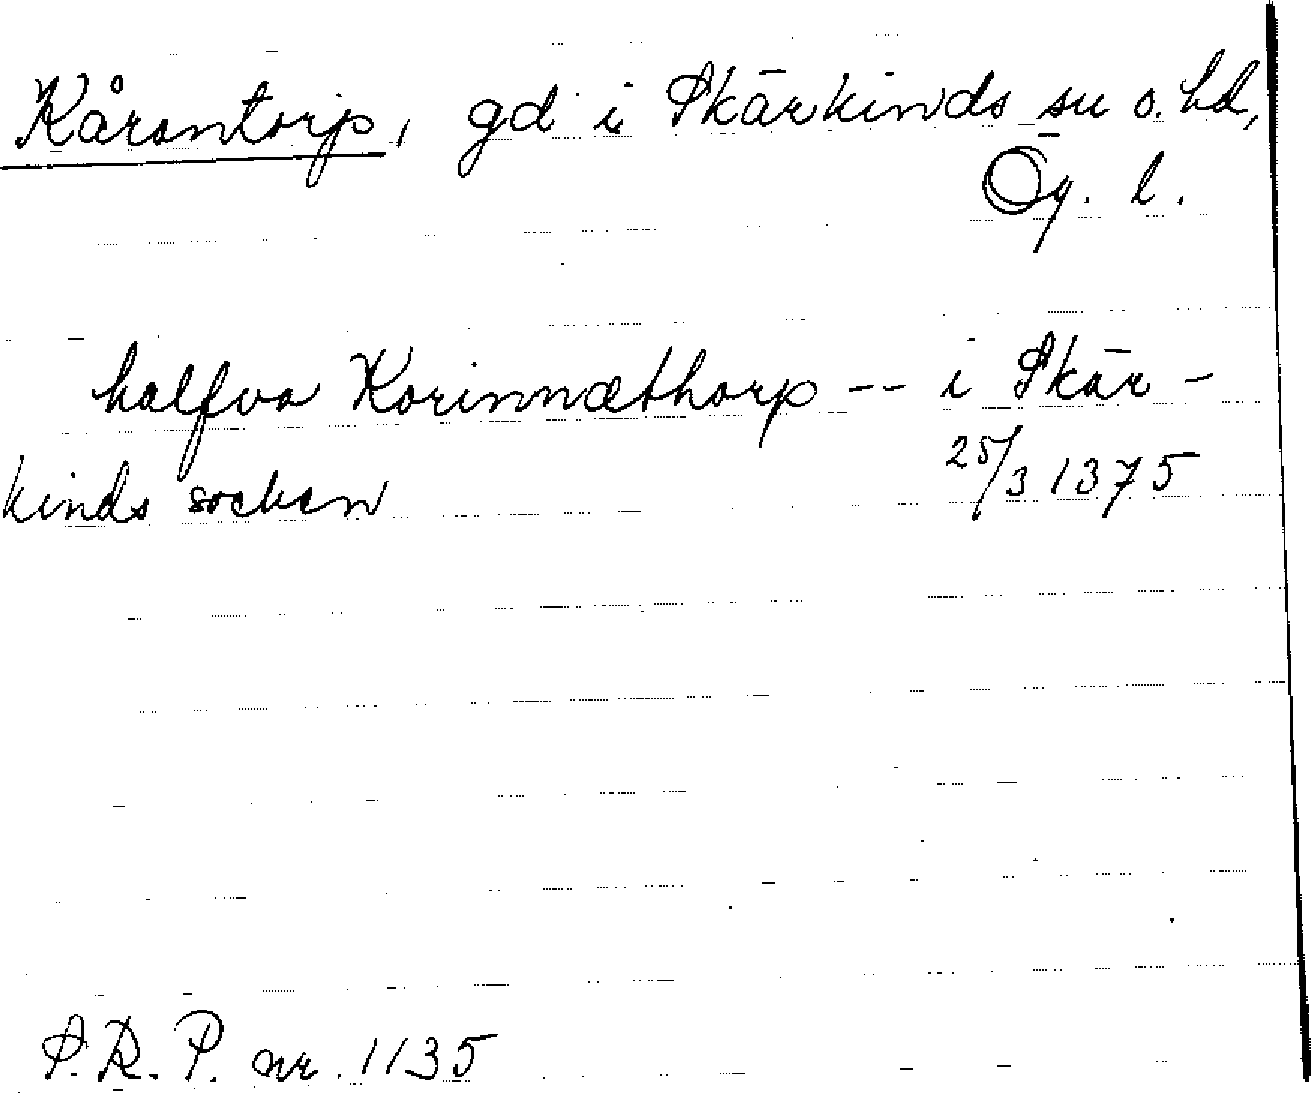 Kårantorp, gd i Skärkinds sn o. hd,
Ög. l.
halfva Korinnæthorp -- i Skär-
kinds socken 25/3 1375
S.R.P. nr. 1135